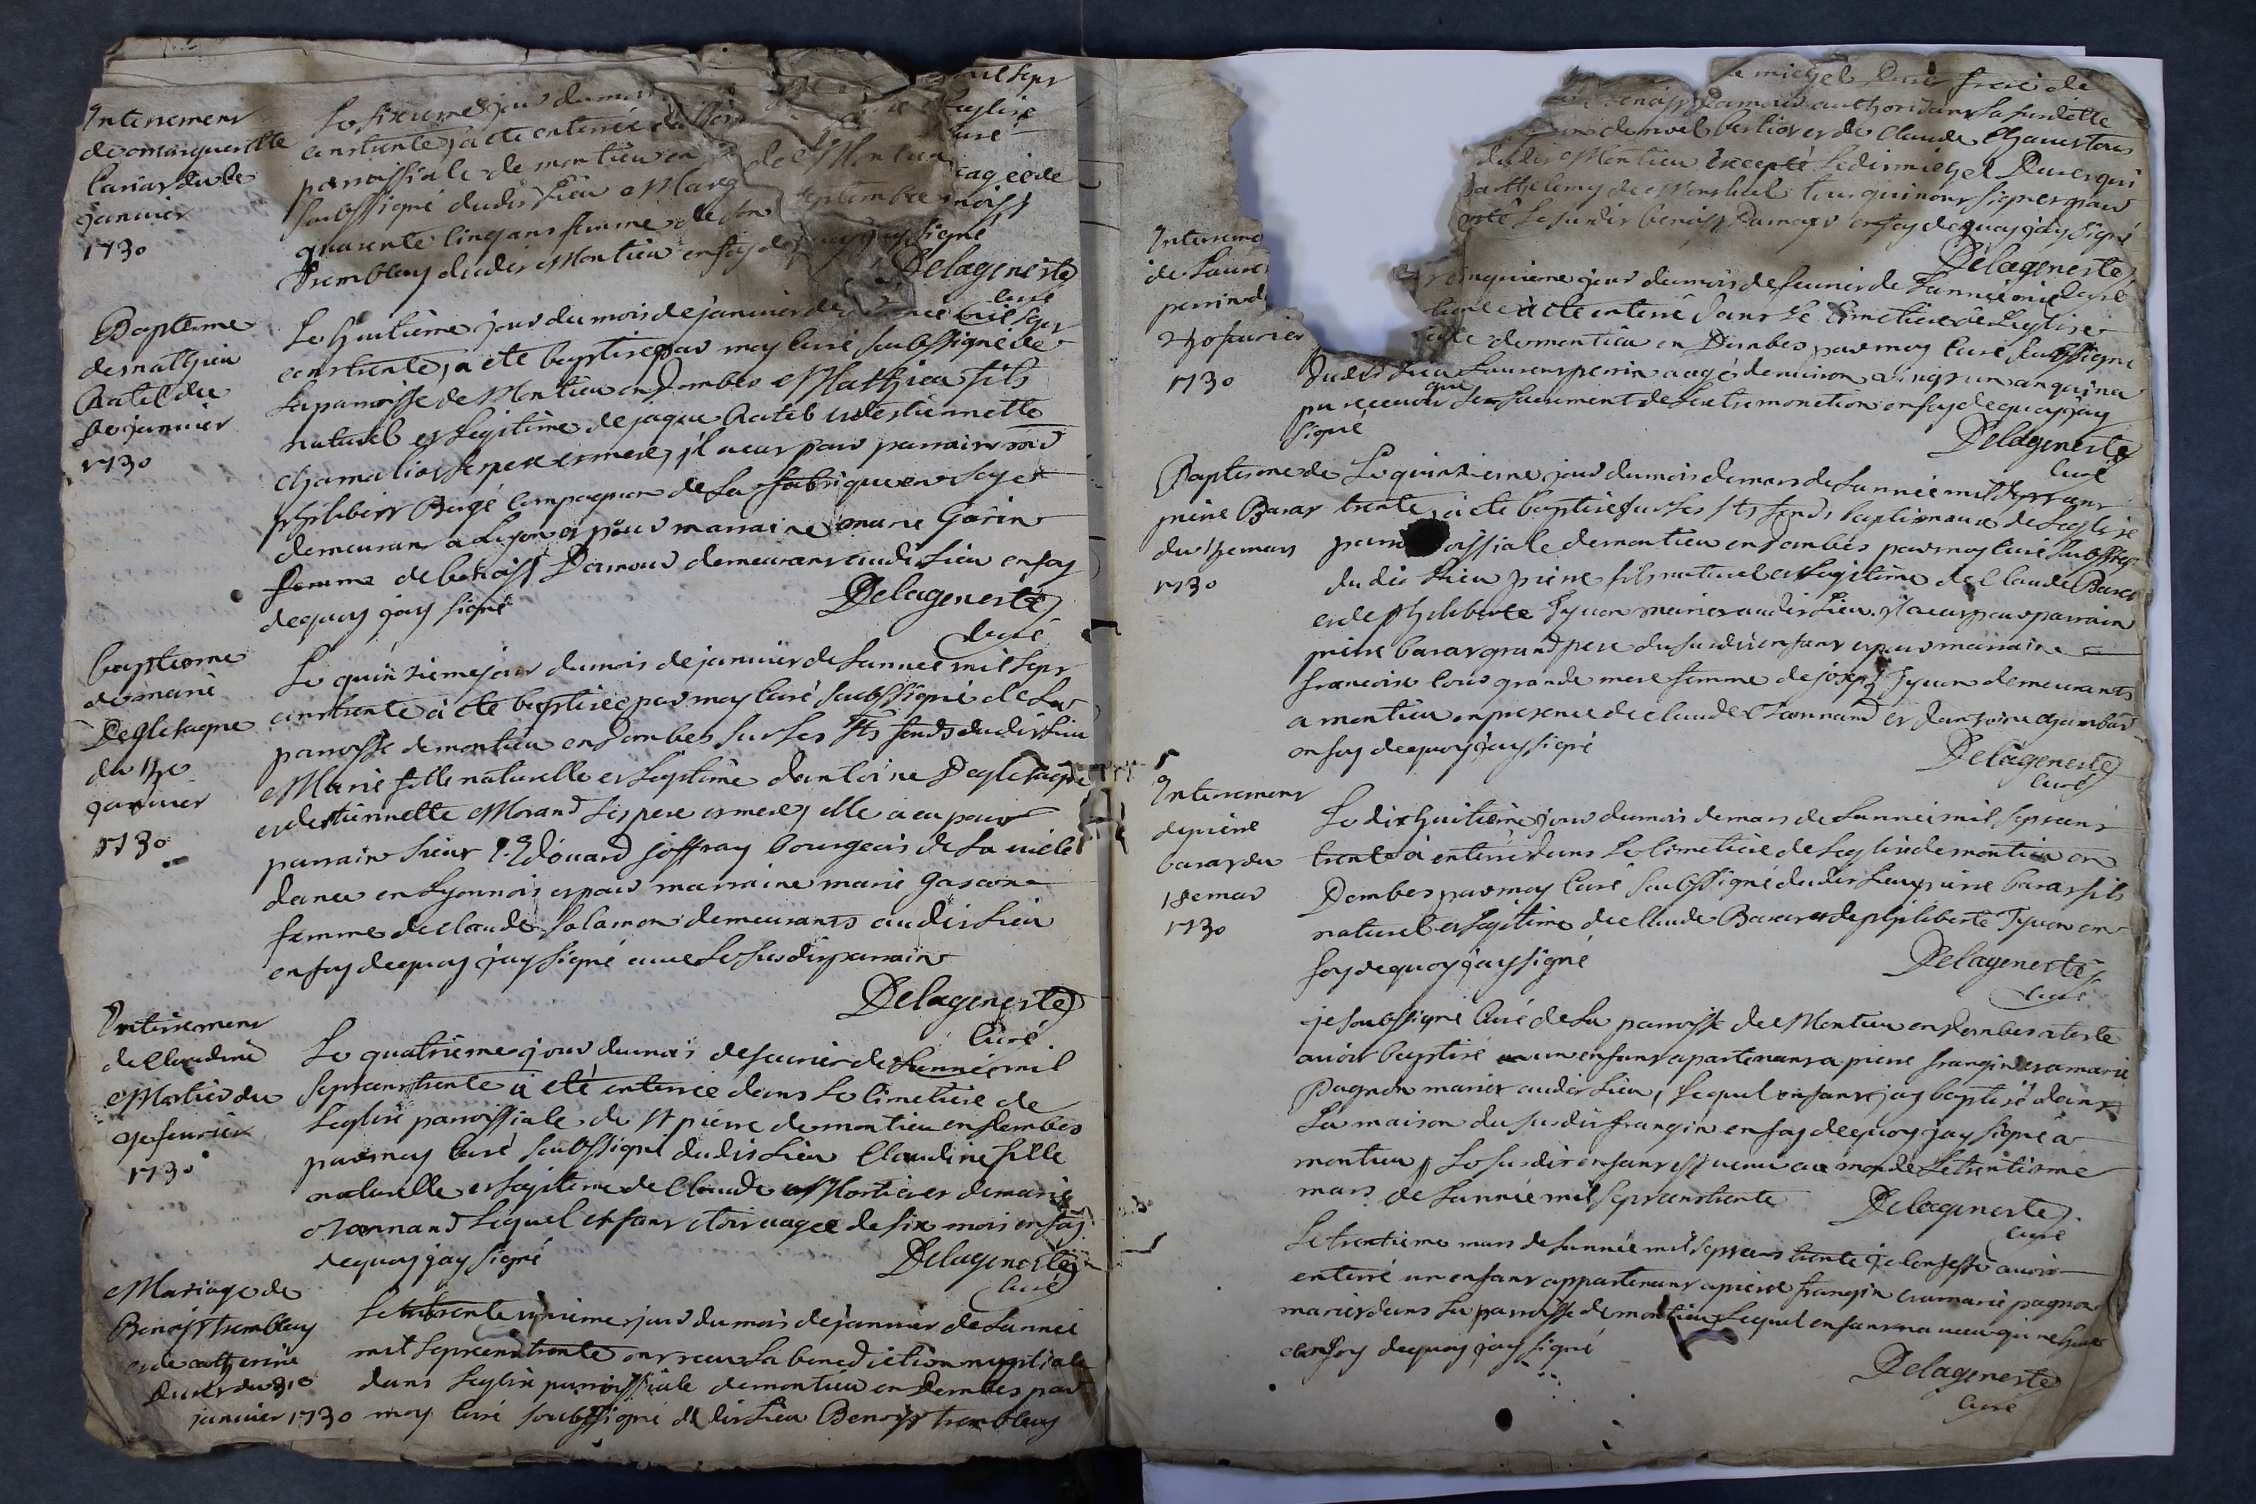 Interrement
de margueritte
du 6e
janvier
1730
Le sixieme jour du mois
cent trente, a ete enterrée
paroissiale de montieu en
soubssigné dudit lieu Marg
quarente cinq ans femme de
Trembley dudit Montieu en foy de quoy jay signé
Delageneste
curé
Baptesme
de mathieu
Ratel du
8e janvier
1730
Le huitième jour du mois de janvier de mil sept
cent trente, a ete baptisé par moy curé soubssigné de
la paroisse de Montieu en Dombes Mathieu fils
naturel et legitime de jaque Ratel et destiennette
chamalior ses pere et mere, il a eut pour parrain
philibert Bergé compagnon de la fabrique en soye
demeurant a Lyon et pour marraine marie Garin
femme de benoist Damour demeurants audit lieu en foy
de quoy jay signé
Delageneste
curé
baptesme
de marie
Degletagne
du 15e
janvier
1730
Le quinzieme jour du mois de janvier de lannee mil sept
cent trente a ete baptisée par moy curé soubssigné de la
paroisse de montieu en dombes sur les sts fonds dudit lieu
Marie fille naturelle et legitime dantoine Degletagne
et destiennette Morand ses pere et mere, elle a eu pour
parrain sieur Edouard joffray bourgeois de la ville
en Lyonnois et pour marraine marie gascon
femme de claude salamon demeurants audit lieu
en foy de quoy jay signé avec le susdit parrain
Delageneste
curé
Interrement
de Claudine
Mortier du
4e feurier
1730
Le quatrieme jour du mois de feurier de lannée mil
sept cent trente a eté enterrée dans le cimetiere de
leglise paroissiale de st pierre de montieu en dombes
par moy curé soubssigné dudit lieu Claudine fille
naturelle et legitime de Claude Mortier et de marie
Jeannand lequel enfant etoit aagee de six mois en foy
de quoy jay signé
Delageneste
curé
Mariage de
Benoist trembley
et de catherine
Durer du 31e
janvier 1730
Le trente unieme jour du mois de janvier de lannee
mil sept cent trente ont receu la benediction nuptiale
dans leglise paroissiale de montieu en Dombes par
moy curé soubssigné dudit lieu Benoist trembley
michel Durer frere de
benoist Damour
la susdette
de noel berlios et de Claude Chanetton
dudit Montieu excepté ledit michel Durer qui
Barthelemy de tous qui nont signer pour
le susdit benoist Damour en foy de quoy jay signé
Delageneste
curé
Interreme
de Lauren
perrin d
25e feurier
1730
cinquieme jour du mois de feurier de lannee mil
trente a ete enterré dans le cimetiere de leglise
de montieu en Dombes par moy curé soubssigné
dudit lieu Laurens perrin aagé denuiron vingt un an qui na
pu receuoir que le sacrement de lextremonction en foy de quoy jay
signé
Delageneste
curé
Baptesme de
pierre Barar
du 15e mars
1730
Le quinzieme jour du mois de mars de lannee mil sept cent
trente, a ete baptisé sur les sts fonds baptismaux de leglise
paroissiale de montieu en dombes par moy curé soubssigné
dudit lieu pierre fils naturel et legitime de Claude Barar
et de philiberte Tyuon mariés audit lieu. il a eut pour parrain
pierre barar grand pere du susdit enfant et pour marraine
francoise grande mere femme de joseph Tyuon demeurants
a montieu en presence de claude Jeannand et dantoine
en foy de quoy jay signé
Delageneste
curé
Interrement
de pierre
barar du
18e mar
1730
Le dixhuitième jour du mois de mars de lannee mil sept cent
trente a enterré dans le cimetiere de leglise de montieu en
Dombes par moy curé soubssigné dudit lieu pierre barar fils
naturel et legitime de claude Barar et de philiberte Tyuon en
foy de quoy jay signé
Delageneste
curé
je soubssigné curé de la paroisse de Montieu en dombes ateste
auoir baptisé un enfant apartenant a pierre frangin et a marie
Pagnon mariés audit lieu, lequel enfant jay baptisé dans
La maison du susdit frangin en foy de quoy jay signé a
montieu, Le susdit enfant est venu au monde le trentieme
mars de lannée mil sept cent trente
Delageneste
curé
Le trentieme mars de lannée mil sept cent trente je confesse auoir
enterré un enfant appartenant a pierre frangin et a marie pagnon
mariés dans la paroisse de montieu lequel enfant na vecu
en foy de quoy jay signé
Delageneste
curé